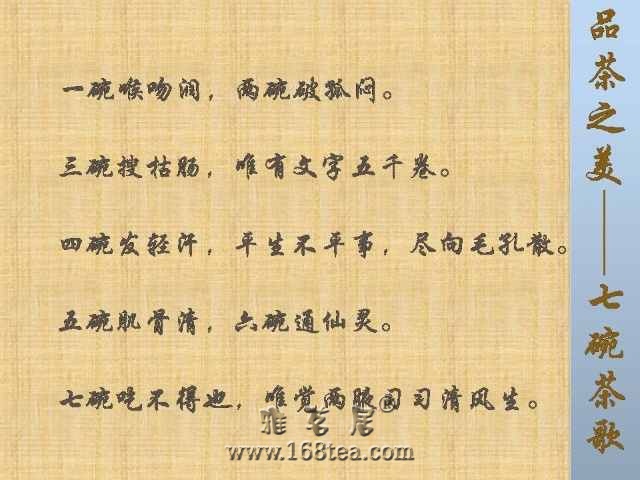 一碗喉吻润，两碗破孤闷。
三碗搜枯肠，唯有文字五千卷。
四碗发轻汗，平生不平事，尽向毛孔散。
五碗肌骨清，六碗通仙灵。
七碗吃不得也，唯觉两腋习习清风生。
品茶之美——七碗茶歌
雅茗居®
www.168tea.com